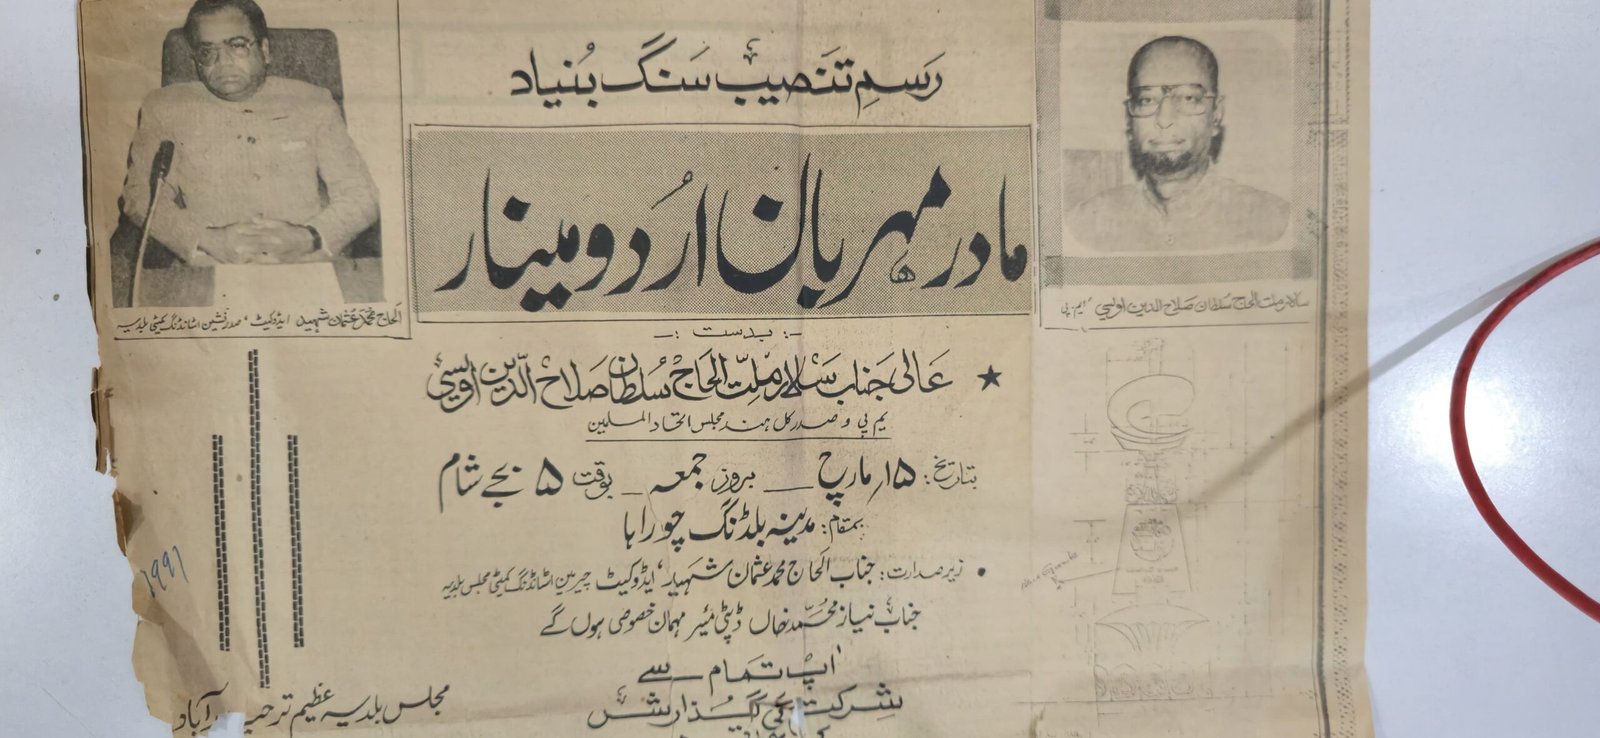 رسمِ تنصیب سنگ بُنیاد
مادر مہربان اُردو مینار
الحاج محمد عُثمان شہید ایڈوکیٹ، صدر نشین اسٹانڈنگ کمیٹی بلدیہ
سالارِ ملت الحاج سُلطان صلاح الدین اویسی ایم پی
-: بدست :-
★ عالی جناب سالارِ ملّت الحاج سُلطان صلاح الدّین اویسی
یم پی و صدر کل ہند مجلس اتحاد المسلمین
بتاریخ: ۱۵؍مارچ __ بروز جمعہ _ بوقت ۵ بجے شام
بمقام: مدینہ بلڈنگ چوراہا
• زیر صدارت: جناب الحاج محمد عثمان شہید، ایڈوکیٹ چیرمین اسٹانڈنگ کمیٹی مجلس بلدیہ
جناب نیاز محمد خاں ڈپٹی میئر مہمان خصوصی ہوں گے
آپ تمام سے
شرکت کی گذارش
1991
مجلس بلدیہ عظیم تر حید آباد